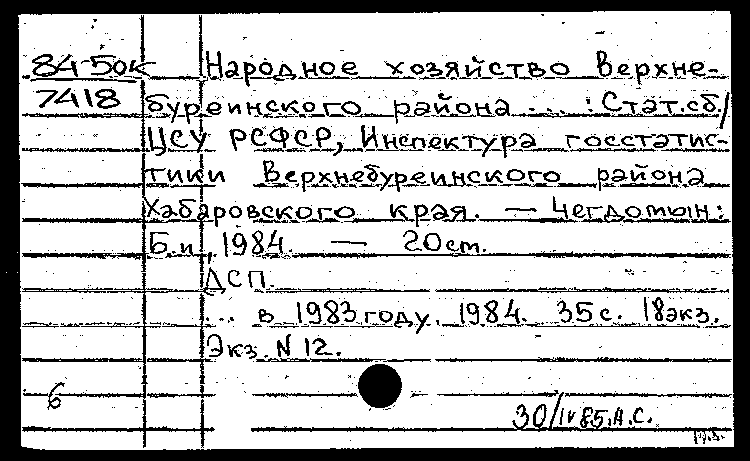 84-50к Народное хозяйство Верхне-
7418 буреинского района ... : Стат.сб./
ЦСУ РСФСР, Инспектура госстатис-
тики Верхнебуреинского района
Хабаровского края. — Чегдомын:
Б.и., 1984. — 20см.
ДСП.
... в 1983 году. 1984. 35с. 18экз.
Экз. N 12.
6
30/IV85.А.С.